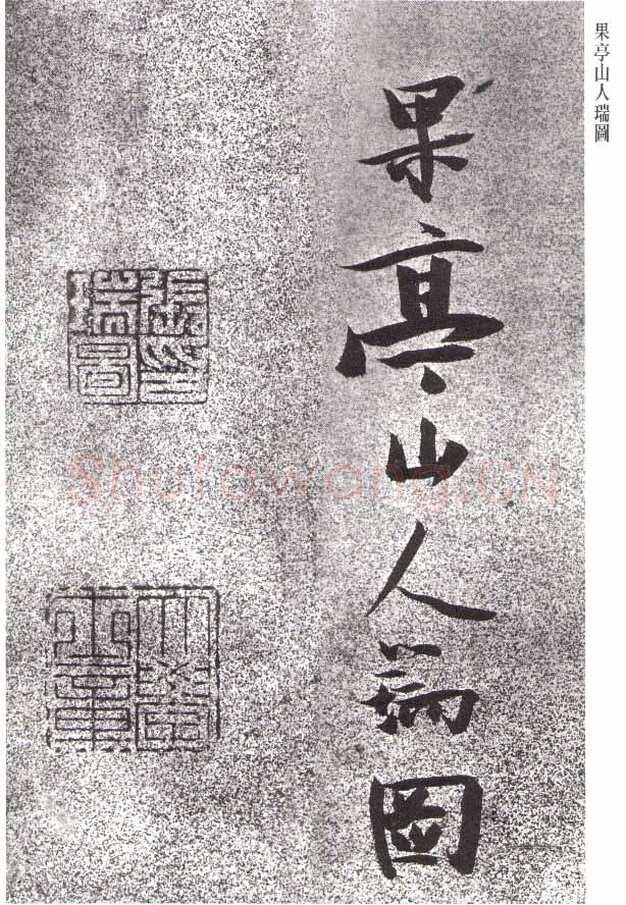 果亭山人瑞圖
果亭山人瑞圖
張印
瑞圖
大學
士章
Shufawang.CN